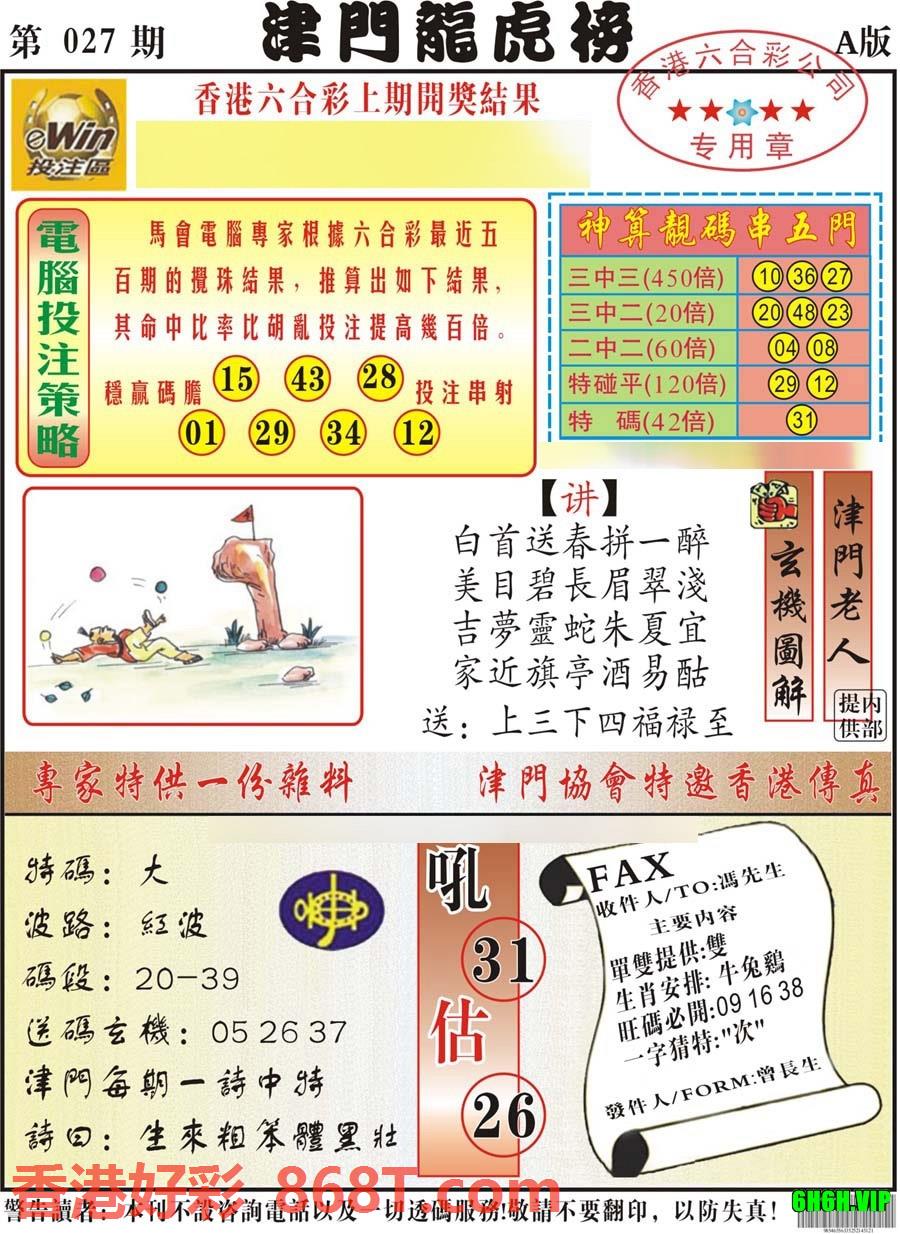 第 027 期
津門龍虎榜
A版
eWin
投注區
香港六合彩上期開獎結果
香港六合彩公司
专用章
電腦投注策略
馬會電腦專家根據六合彩最近五
百期的攪珠結果，推算出如下結果，
其命中比率比胡亂投注提高幾百倍。
穩贏碼膽 15 43 28 投注串射
01 29 34 12
神算靚碼串五門
三中三(450倍) 10 36 27
三中二(20倍) 20 48 23
二中二(60倍) 04 08
特碰平(120倍) 29 12
特 碼(42倍) 31
【讲】
白首送春拼一醉
美目碧長眉翠淺
吉夢靈蛇朱夏宜
家近旗亭酒易酤
送：上三下四福禄至
玄機圖解
津門老人
内部提供
專家特供一份雜料
津門協會特邀香港傳真
特碼：大
波路：紅波
碼段：20-39
送碼玄機：05 26 37
津門每期一詩中特
詩曰：生來粗笨體黑壯
吼
31
估
26
FAX
收件人/TO:馮先生
主要内容
單雙提供:雙
生肖安排:牛兔鷄
旺碼必開:09 16 38
一字猜特:"次"
發件人/FORM:曾長生
香港好彩 868T.com
警告讀者：本刊不設咨詢電話以及一切透碼服務!敬請不要翻印，以防失真!
6H6H.VIP